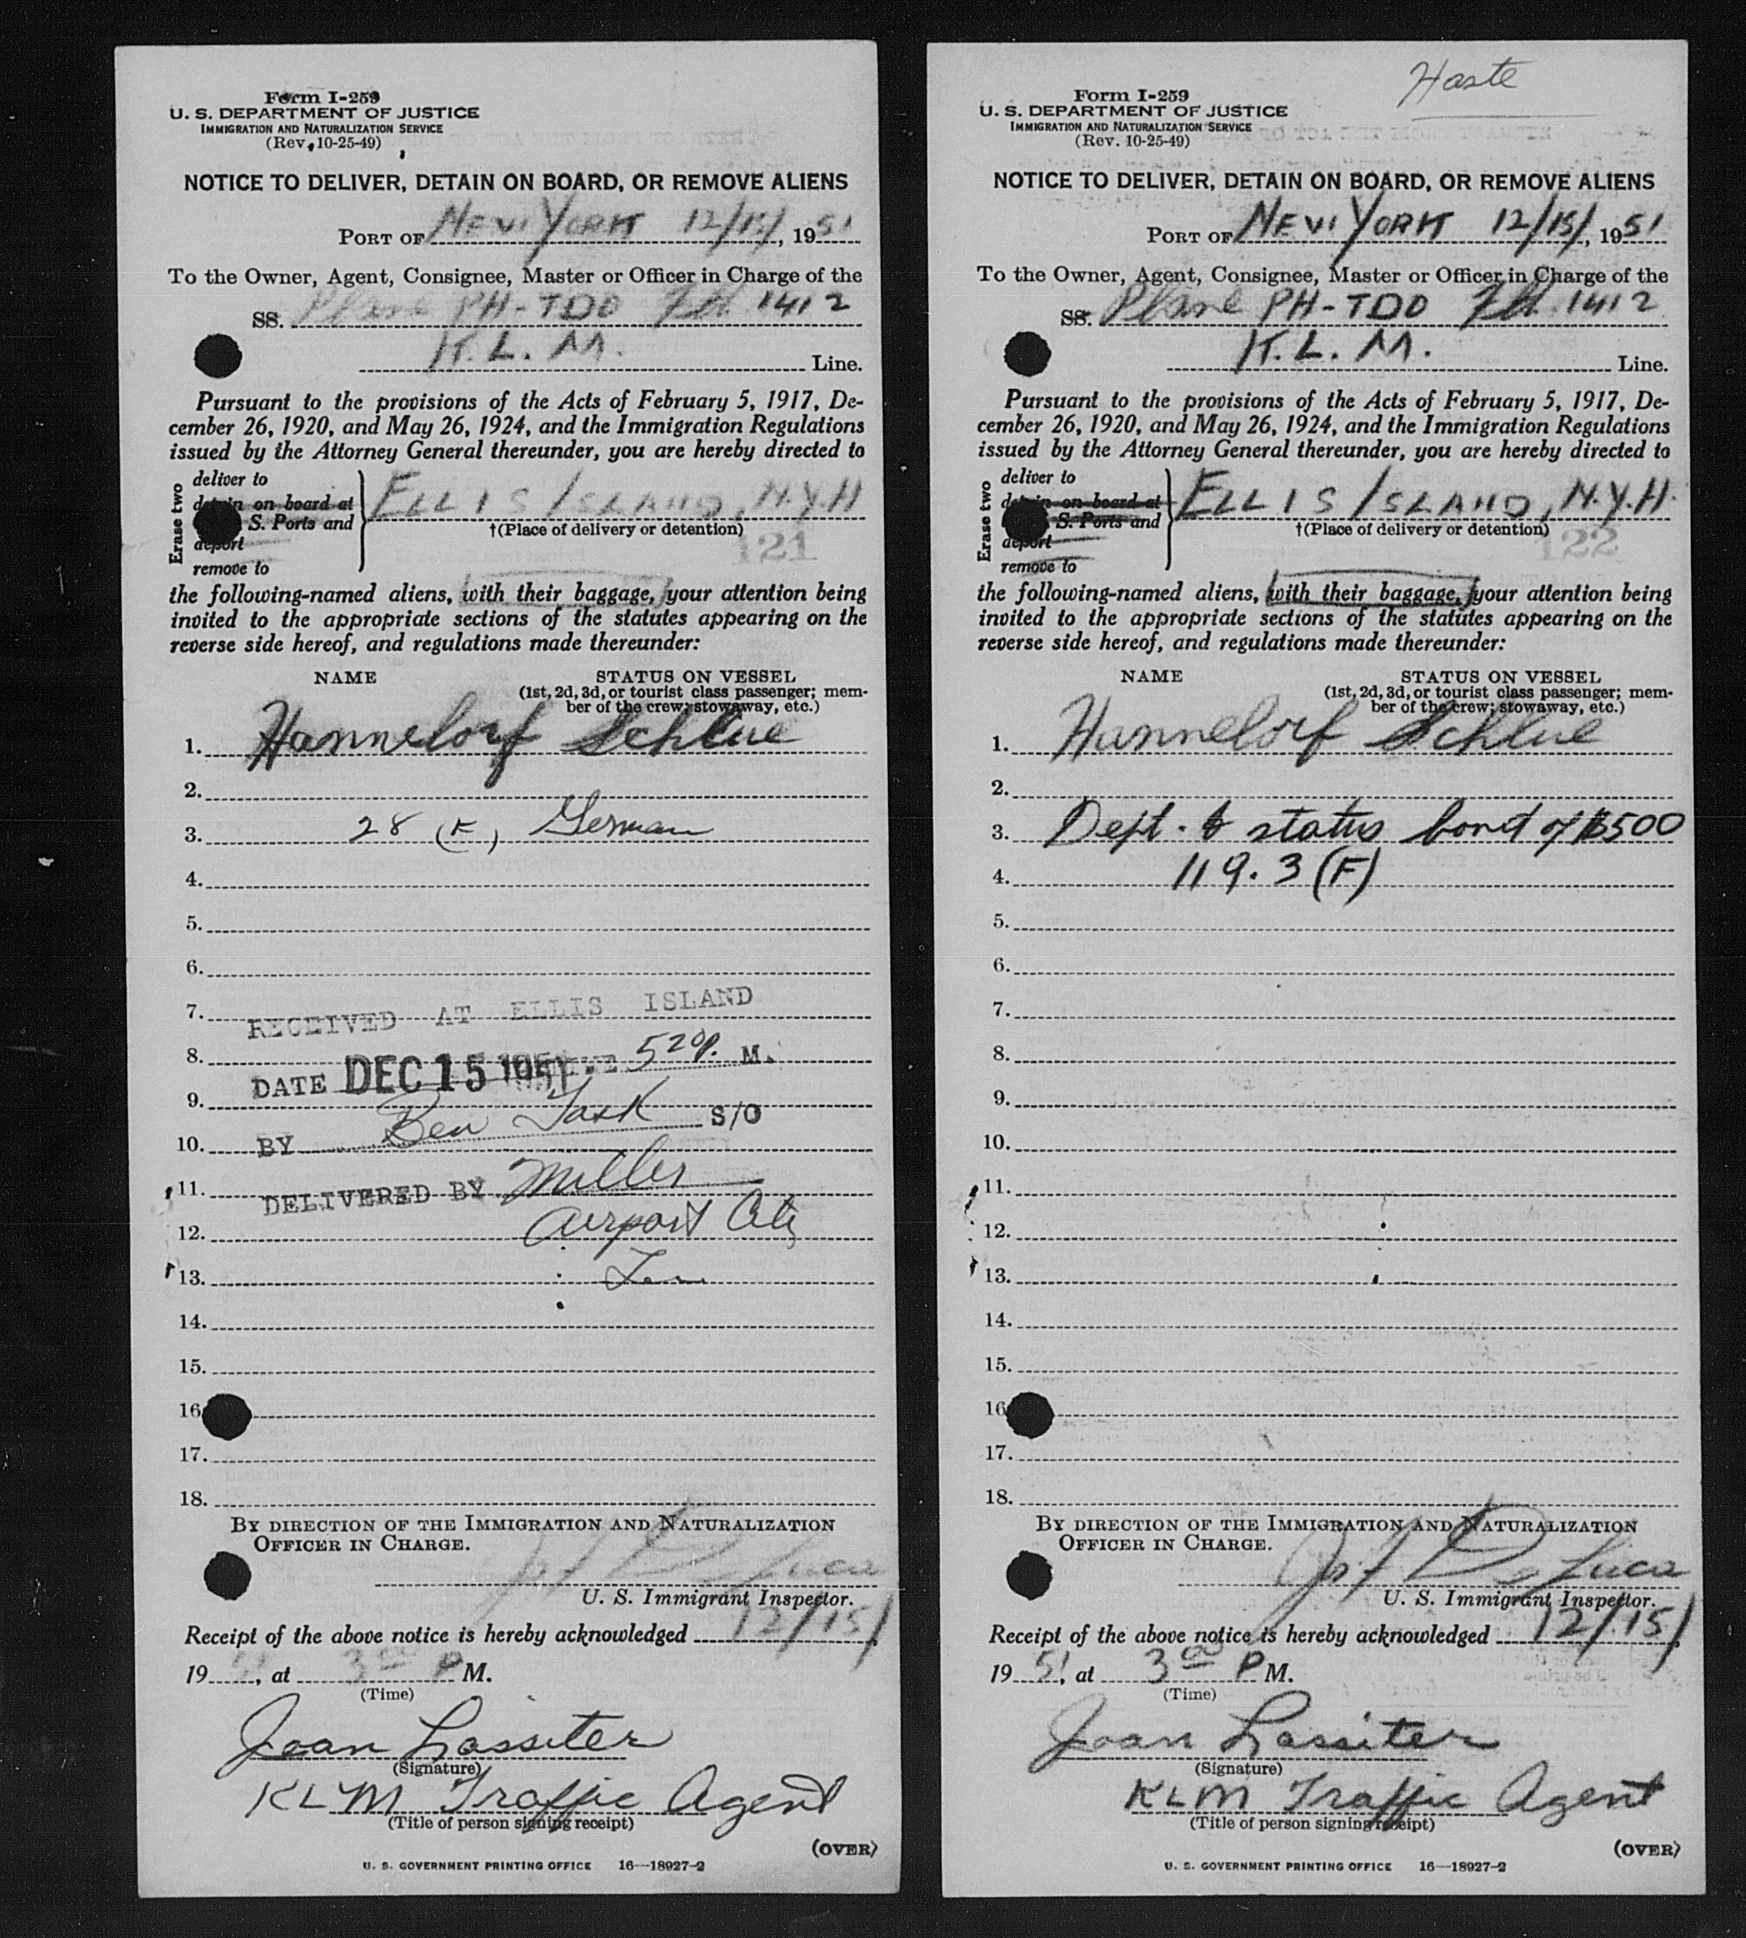 Form I-259
U. S. DEPARTMENT OF JUSTICE
IMMIGRATION AND NATURALIZATION SERVICE
(Rev. 10-25-49)
NOTICE TO DELIVER, DETAIN ON BOARD, OR REMOVE ALIENS
PORT OF NEW YORK 12/15/, 1951
To the Owner, Agent, Consignee, Master or Officer in Charge of the
SS. Plane PH-TDO Flt. 1412
K. L. M. Line.
Pursuant to the provisions of the Acts of February 5, 1917, De-
cember 26, 1920, and May 26, 1924, and the Immigration Regulations
issued by the Attorney General thereunder, you are hereby directed to
Erase two
deliver to
detain on board at
S. Ports and
deport
remove to
ELLIS ISLAND, N.Y.H
†(Place of delivery or detention)
121
the following-named aliens, with their baggage, your attention being
invited to the appropriate sections of the statutes appearing on the
reverse side hereof, and regulations made thereunder:
NAME
STATUS ON VESSEL
(1st, 2d, 3d, or tourist class passenger; mem-
ber of the crew; stowaway, etc.)
1. Hannelorf Schlue
2.
3. 28 (F) German
4.
5.
6.
7.
RECEIVED AT ELLIS ISLAND
8.
DATE DEC 15 1951 520P. M.
9.
BY Ben Task S/O
10.
11.
DELIVERED BY Miller
12. Airport City
13.
14.
15.
16.
17.
18.
BY DIRECTION OF THE IMMIGRATION AND NATURALIZATION
OFFICER IN CHARGE.
Jos F De Luca
U. S. Immigrant Inspector.
Receipt of the above notice is hereby acknowledged 12/15/,
1951, at 3 00 P M.
(Time)
Joan Lassiter
(Signature)
KLM Traffic Agent
(Title of person signing receipt)
(OVER)
U. S. GOVERNMENT PRINTING OFFICE 16—18927-2
Haste
Form I-259
U. S. DEPARTMENT OF JUSTICE
IMMIGRATION AND NATURALIZATION SERVICE
(Rev. 10-25-49)
NOTICE TO DELIVER, DETAIN ON BOARD, OR REMOVE ALIENS
PORT OF NEW YORK 12/15/, 1951
To the Owner, Agent, Consignee, Master or Officer in Charge of the
SS. Plane PH-TDO Flt. 1412
K. L. M. Line.
Pursuant to the provisions of the Acts of February 5, 1917, De-
cember 26, 1920, and May 26, 1924, and the Immigration Regulations
issued by the Attorney General thereunder, you are hereby directed to
Erase two
deliver to
detain on board at
S. Ports and
deport
remove to
ELLIS ISLAND, N.Y.H.
†(Place of delivery or detention)
122
the following-named aliens, with their baggage, your attention being
invited to the appropriate sections of the statutes appearing on the
reverse side hereof, and regulations made thereunder:
NAME
STATUS ON VESSEL
(1st, 2d, 3d, or tourist class passenger; mem-
ber of the crew; stowaway, etc.)
1. Hannelorf Schlue
2.
3. Dept. & status bond of $500
4. 119.3 (F)
5.
6.
7.
8.
9.
10.
11.
12.
13.
14.
15.
16.
17.
18.
BY DIRECTION OF THE IMMIGRATION AND NATURALIZATION
OFFICER IN CHARGE.
Jos F De Luca
U. S. Immigrant Inspector.
Receipt of the above notice is hereby acknowledged 12/15/,
1951, at 3 00 P M.
(Time)
Joan Lassiter
(Signature)
KLM Traffic Agent
(Title of person signing receipt)
(OVER)
U. S. GOVERNMENT PRINTING OFFICE 16—18927-2